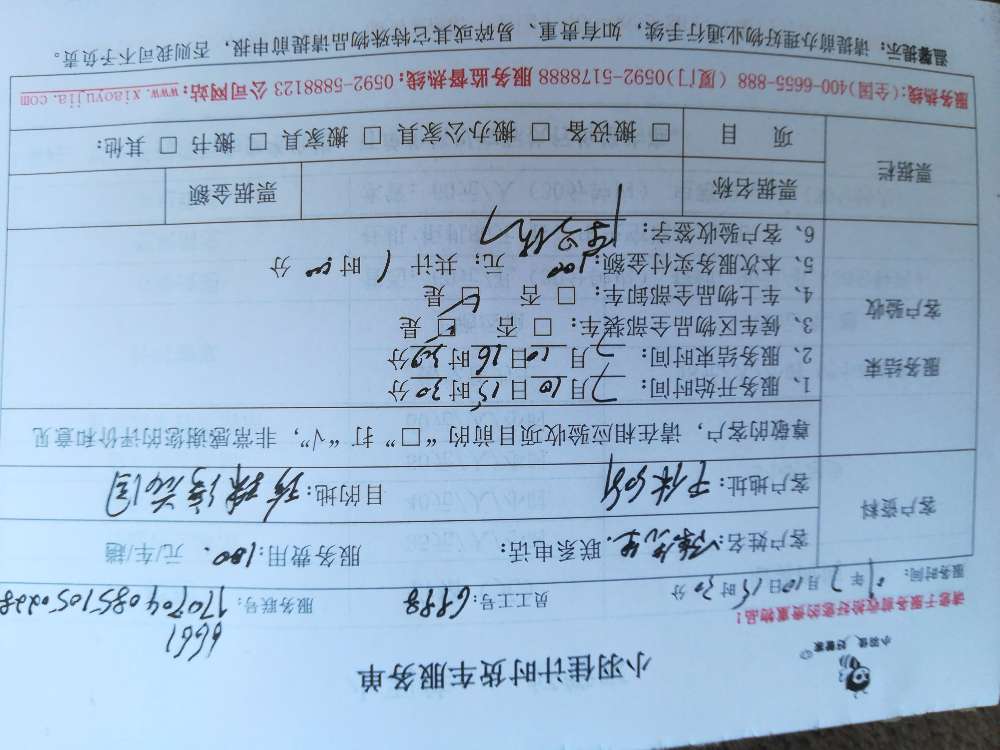 小羽佳计时货车服务单
小羽佳 好管家
6661
请您于服务前收拾好您的贵重物品!
服务时间: 年7月10日15时30分 员工工号:6888 服务联号:
客户资料 客户姓名:陈先生 联系电话: 服务费用:100. 元/车/趟
客户地址: 目的地:珍珠湾花园
尊敬的客户,请在相应验收项目前的“□”打“√”,非常感谢您的评价和意见
服务结束
客户验收
1、服务开始时间:7月10日15时30分
2、服务结束时间:7月10日16时30分
3、候车区物品全部装车:□ 否 □ 是
4、车上物品全部卸车:□ 否 □ 是
5、本次服务实付金额:100元;共计 1 时 00 分
6、客户验收签字:
票据栏 票据名称 票据金额
项 目 □ 搬设备 □ 搬办公家具 □ 搬家具 □ 搬书 □ 其他:
服务热线:(全国)400-6655-888 (厦门)0592-5178888 服务监督热线:0592-5888123 公司网站:www.xiaoyujia.com
温馨提示:请提前办理好物业通行手续,如有贵重、易碎或其它特殊物品请提前申报,否则我司不予负责。